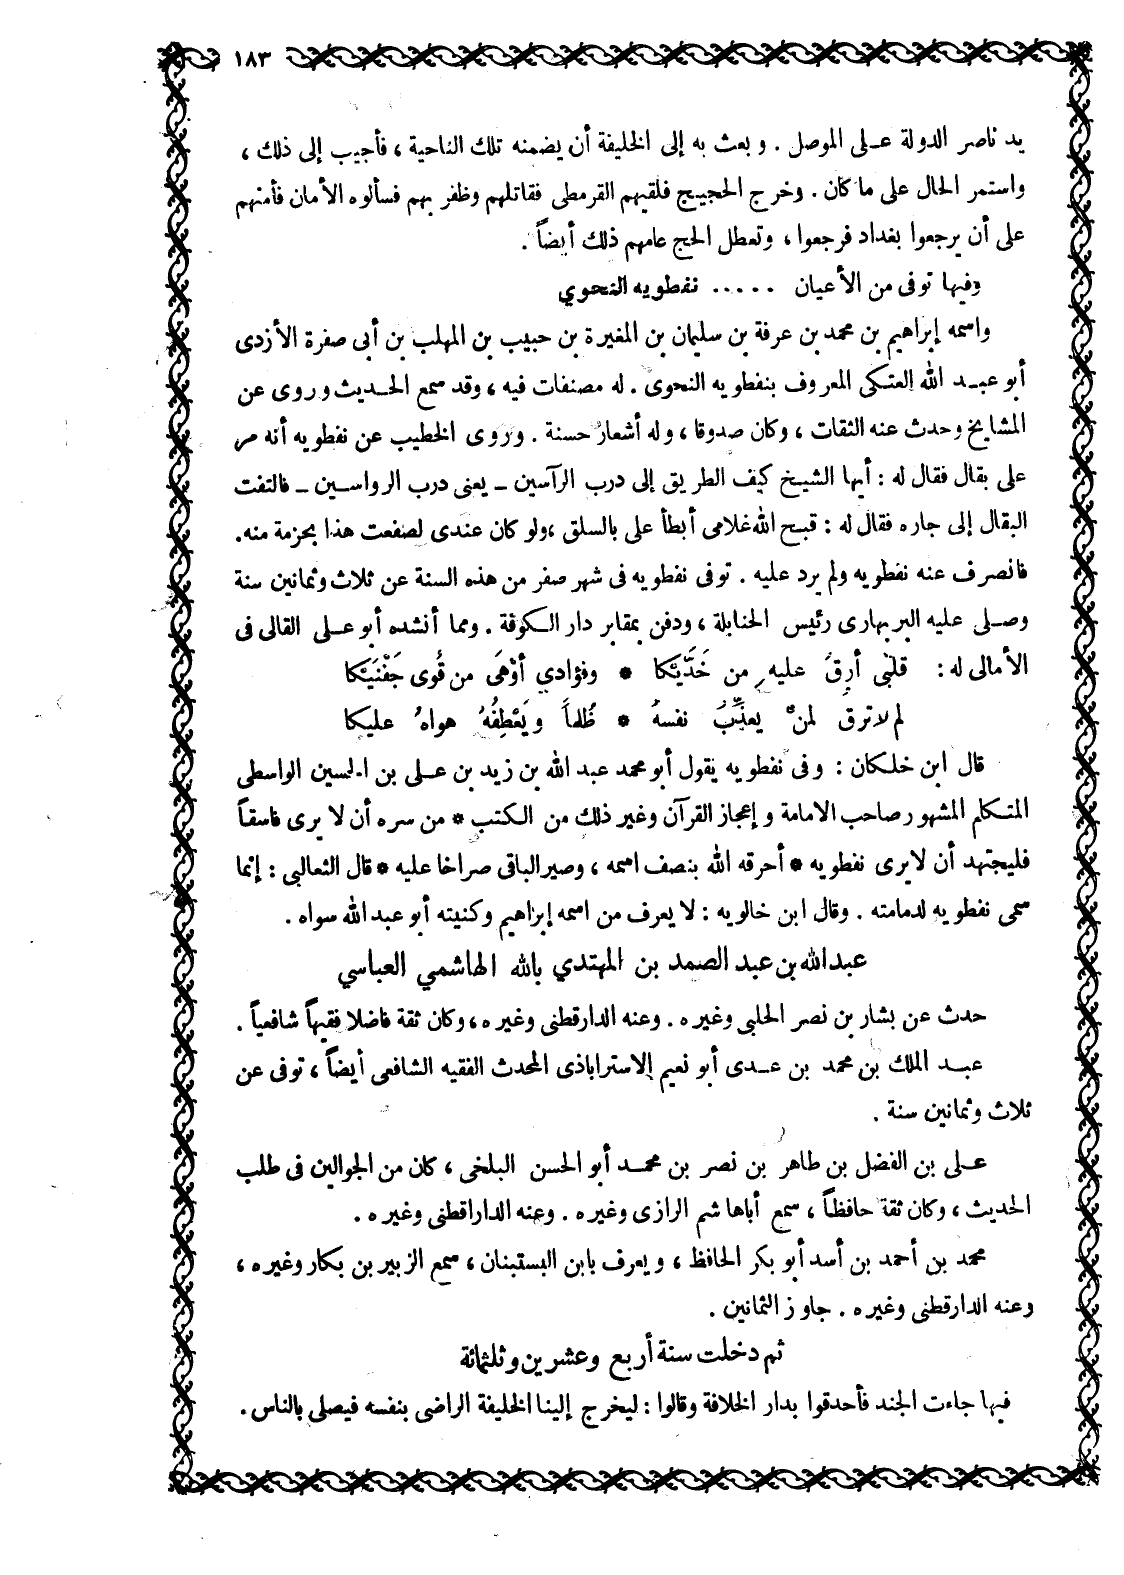 ١٨٣
يد ناصر الدولة على الموصل . وبعث به إلى الخليفة أن يضمنه تلك الناحية ، فأجيب إلى ذلك ،
واستمر الحال على ما كان . وخرج الحجيج فلقيهم القرمطى فقاتلهم وظفر بهم فسألوه الأمان فأمنهم
على أن يرجعوا بغداد فرجعوا ، وتعطل الحج عامهم ذلك أيضاً .
وفيها توفى من الأعيان ..... نفطويه النحوي
واسمه إبراهيم بن محمد بن عرفة بن سليمان بن المغيرة بن حبيب بن المهلب بن أبى صفرة الأزدى
أبو عبد الله العتكى المعروف بنفطويه النحوى . له مصنفات فيه ، وقد سمع الحديث وروى عن
المشايخ وحدث عنه الثقات ، وكان صدوقا ، وله أشعار حسنة . وروى الخطيب عن نفطويه أنه مر
على بقال فقال له : أيها الشيخ كيف الطريق إلى درب الرآسين ــ يعنى درب الرواسين ــ فالتفت
البقال إلى جاره فقال له : قبح الله غلامى أبطأ على بالسلق ، ولو كان عندى لصفعت هذا بحزمة منه .
فانصرف عنه نفطويه ولم يرد عليه . توفى نفطويه فى شهر صفر من هذه السنة عن ثلاث وثمانين سنة
وصلى عليه البربهارى رئيس الحنابلة ، ودفن بمقابر دار الكوفة . ومما أنشده أبو على القالى فى
الأمالى له : قلبى أرق عليه من خَدَّيْكا * وفؤادي أوْهَى من قُوى جَفْنَيْكا
لم لا ترق لمن يعذِّبُ نفسهُ * ظُلماً ويَعْطِفُهُ هواهُ عليكا
قال ابن خلكان : وفى نفطويه يقول أبو محمد عبد الله بن زيد بن على بن الحسين الواسطى
المتكلم المشهور صاحب الامامة وإعجاز القرآن وغير ذلك من الكتب * من سره أن لا يرى فاسقاً
فليجتهد أن لا يرى نفطويه * أحرقه الله بنصف اسمه ، وصير الباقى صراخا عليه * قال الثعالبى : إنما
سمى نفطويه لدمامته . وقال ابن خالويه : لا يعرف من اسمه إبراهيم وكنيته أبو عبد الله سواه .
عبد الله بن عبد الصمد بن المهتدي بالله الهاشمي العباسي
حدث عن بشار بن نصر الحلبى وغيره . وعنه الدارقطنى وغيره ، وكان ثقة فاضلا فقيهاً شافعياً .
عبد الملك بن محمد بن عدى أبو نعيم الاستراباذى المحدث الفقيه الشافعى أيضاً ، توفى عن
ثلاث وثمانين سنة .
على بن الفضل بن طاهر بن نصر بن محمد أبو الحسن البلخى ، كان من الجوالين فى طلب
الحديث ، وكان ثقة حافظاً ، سمع أباهاشم الرازى وغيره . وعنه الداراقطنى وغيره .
محمد بن أحمد بن أسد أبو بكر الحافظ ، ويعرف بابن البستبنان ، سمع الزبير بن بكار وغيره ،
وعنه الدارقطنى وغيره . جاوز الثمانين .
ثم دخلت سنة أربع وعشرين وثلثمائة
فيها جاءت الجند فأحدقوا بدار الخلافة وقالوا : ليخرج إلينا الخليفة الراضى بنفسه فيصلى بالناس .